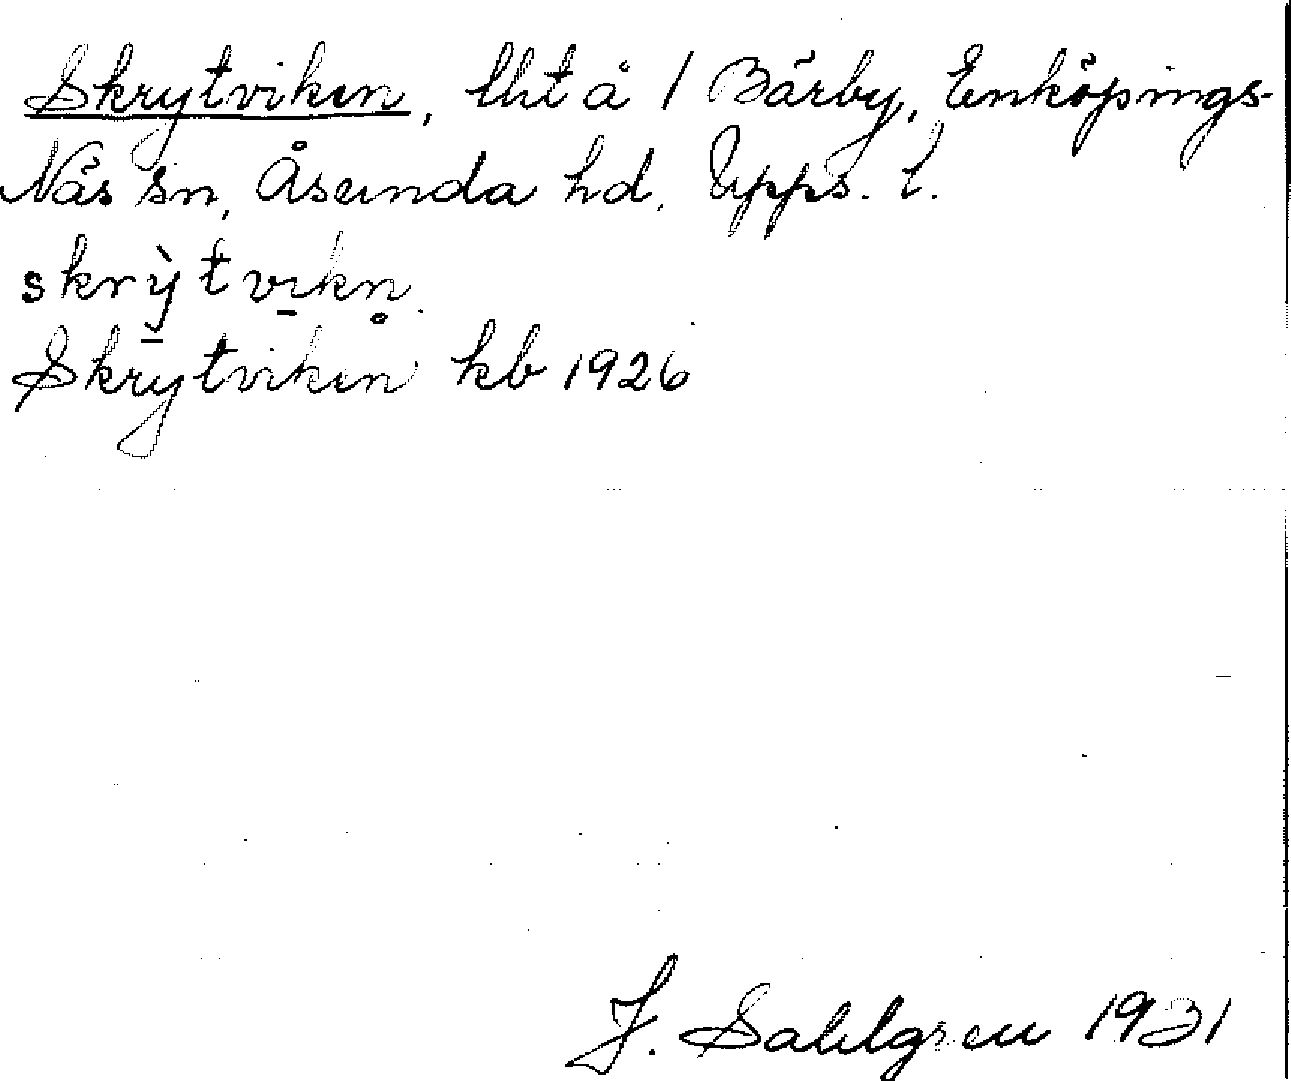 Skrytviken, lht å 1 Bärby, Enköpings-
Näs sn, Åsunda hd, Upps. l.
skrỳ̱tvi̱kn̥.
Skrytviken kb 1926
J. Sahlgren 1931